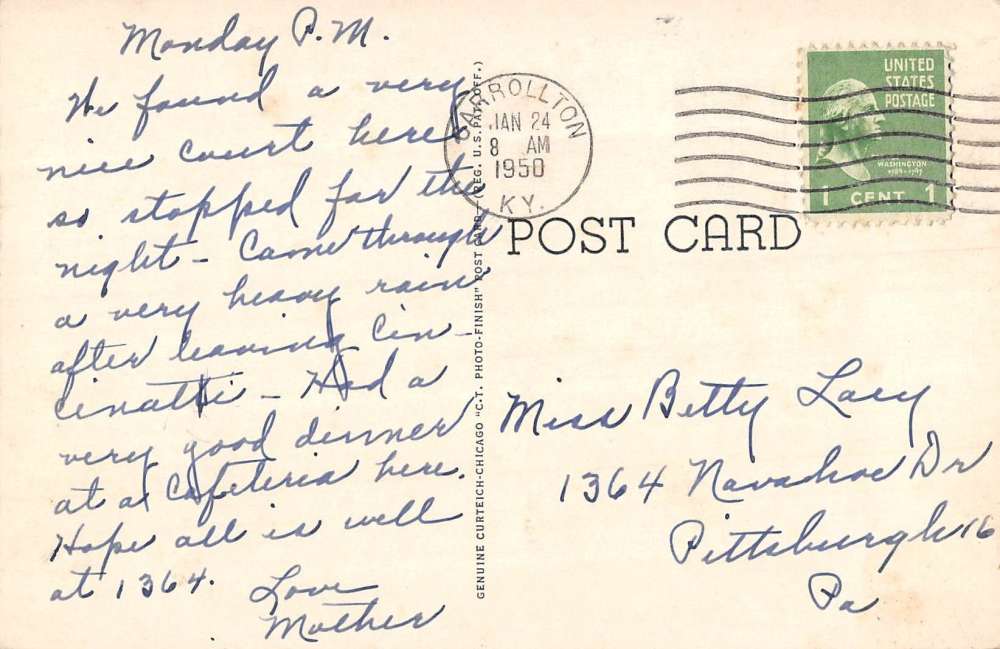 Monday P.M.
We found a very
nice court here
so stopped for the
night - Came through
a very heavy rain
after leaving Cin-
cinatti - Had a
very good dinner
at a Cafeteria here.
Hope all is well
at 1364.
Love
Mother
GENUINE CURTEICH-CHICAGO "C.T. PHOTO-FINISH" POST CARD - (REG. U.S. PAT. OFF.)
CARROLLTON
JAN 24
8 AM
1950
KY.
UNITED
STATES
POSTAGE
WASHINGTON
1789-1797
1 CENT 1
POST CARD
Miss Betty Lacy
1364 Navahoe Dr
Pittsburgh 16
Pa